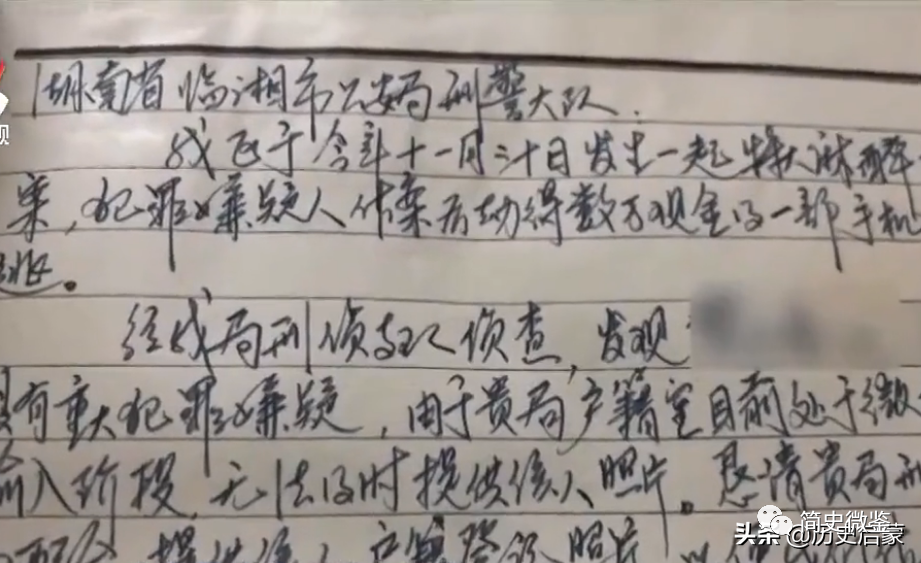 湖南省临湘市公安局刑警大队:
我区于今年十一月二十日发生一起特大麻醉
案,犯罪嫌疑人作案后劫得数万现金及一部手机
逃。
经我局刑侦支队侦查,发现
具有重大犯罪嫌疑,由于贵局户籍室目前处于微
输入阶段,无法及时提供该人照片。恳请贵局刑
配合 提供该人户籍登记照片 以便
视
简史微鉴
头条@历史启蒙